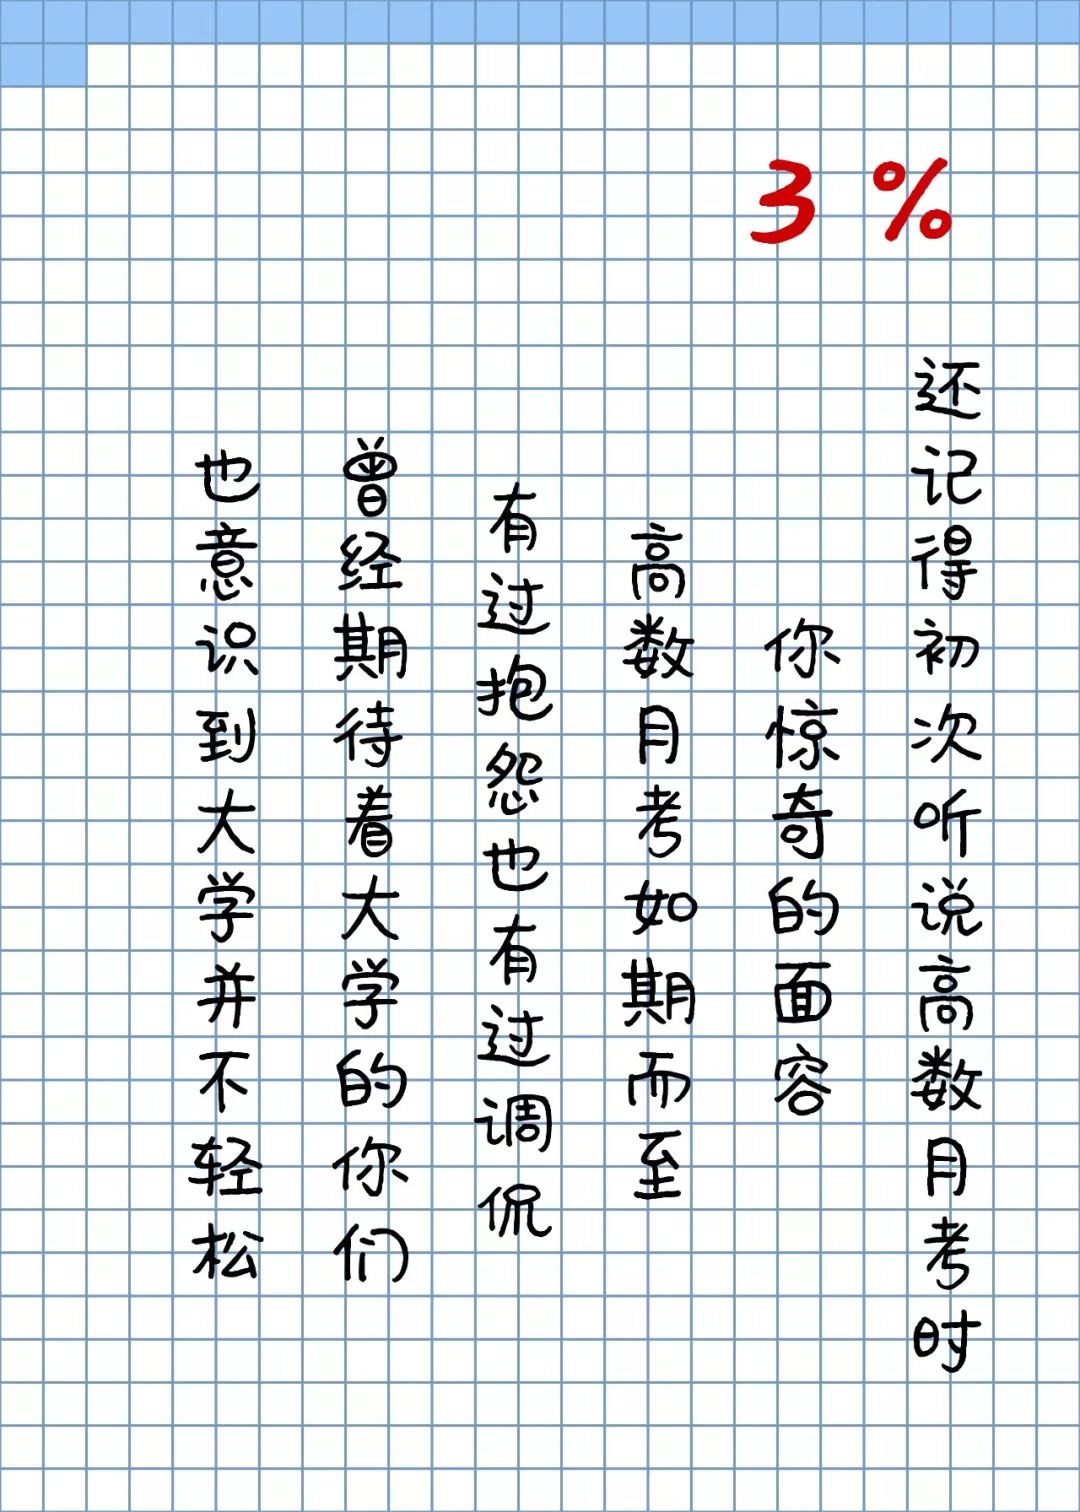 3 %
还记得初次听说高数月考时
你惊奇的面容
高数月考如期而至
有过抱怨也有过调侃
曾经期待着大学的你们
也意识到大学并不轻松